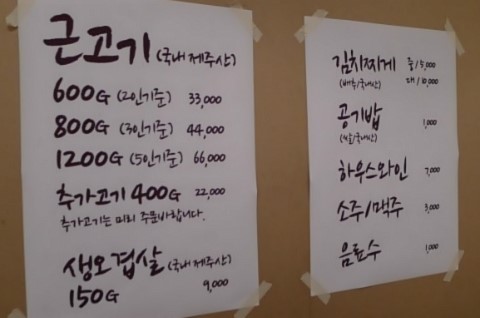 근고기 (국내 제주산)
600G (2인기준) 33,000
800G (3인기준) 44,000
1200G (5인기준) 66,000
추가고기 400G 22,000
추가고기는 미리 주문바랍니다.
생오겹살 (국내 제주산)
150G 9,000
김치찌게 중/5,000
(배추/국내산) 대/10,000
공기밥 1,000
(쌀/국내산)
하우스와인 7,000
소주/맥주 3,000
음료수 1,000